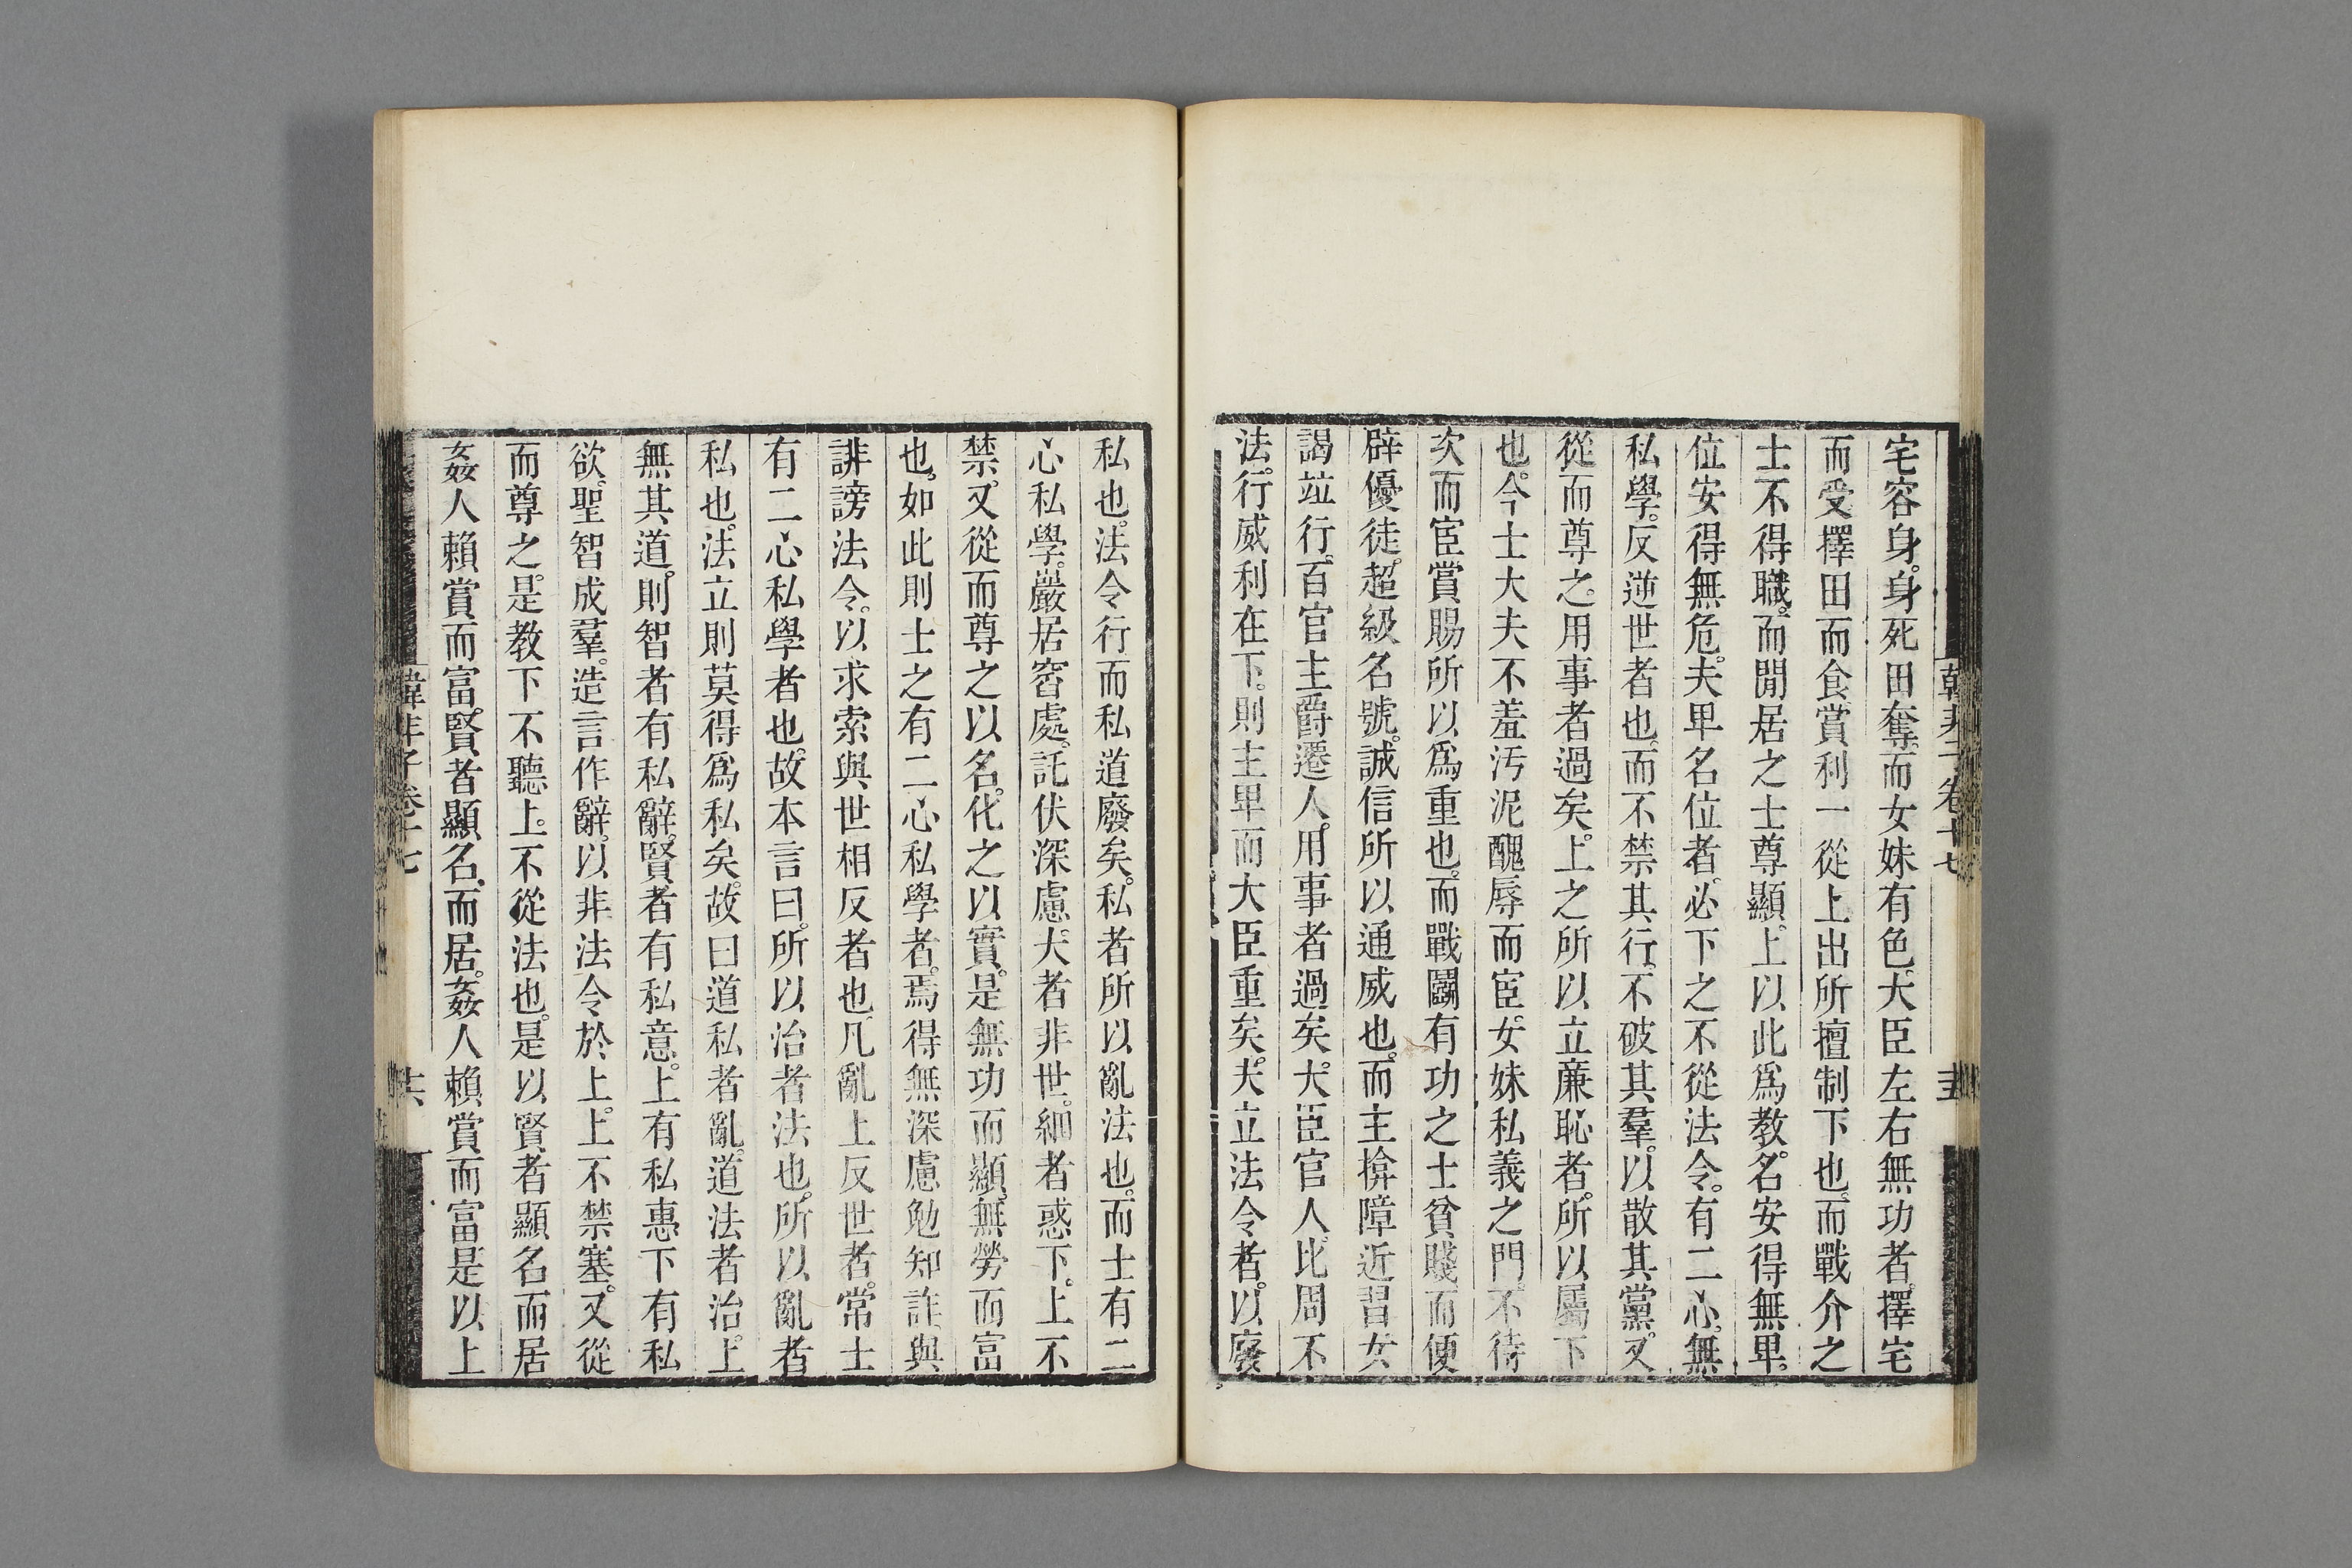 韓非子卷十七
宅容身。身死田奪。而女妹有色。大臣左右無功者。擇宅
而受。擇田而食。賞利一從上出。所擅制下也。而戰介之
士不得職。而閒居之士尊顯。上以此爲教。名安得無卑。
位安得無危。夫卑名位者。必下之不從法令。有二心。無
私學。反逆世者也。而不禁其行。不破其羣。以散其黨。又
從而尊之。用事者過矣。上之所以立廉恥者。所以屬下
也。今士大夫不羞汚泥醜辱而宦。女妹私義之門。不待
次而宦。賞賜所以爲重也。而戰鬭有功之士貧賤。而便
辟優徒。超級名號。誠信所以通威也。而主揜障近習女
謁竝行。百官主爵遷人。用事者過矣。大臣官人。比周不
法。行威利在下。則主卑而大臣重矣。夫立法令者。以廢
私也。法令行而私道廢矣。私者所以亂法也。而士有二
心私學。巖居窞處。託伏深慮。大者非世。細者惑下。上不
禁。又從而尊之以名。化之以實。是無功而顯。無勞而富
也。如此則士之有二心私學者。焉得無深慮勉知詐與
誹謗法令。以求索與世相反者也。凡亂上反世者。常士
有二心私學者也。故本言曰。所以治者法也。所以亂者
私也。法立則莫得爲私矣。故曰道私者亂。道法者治。上
無其道。則智者有私辭。賢者有私意。上有私惠下有私
欲。聖智成羣。造言作辭。以非法令於上。上不禁塞。又從
而尊之。是教下不聽上。不從法也。是以賢者顯名而居
姦人賴賞而富。賢者顯名。而居。姦人賴賞而富是以上
韓非子卷十七